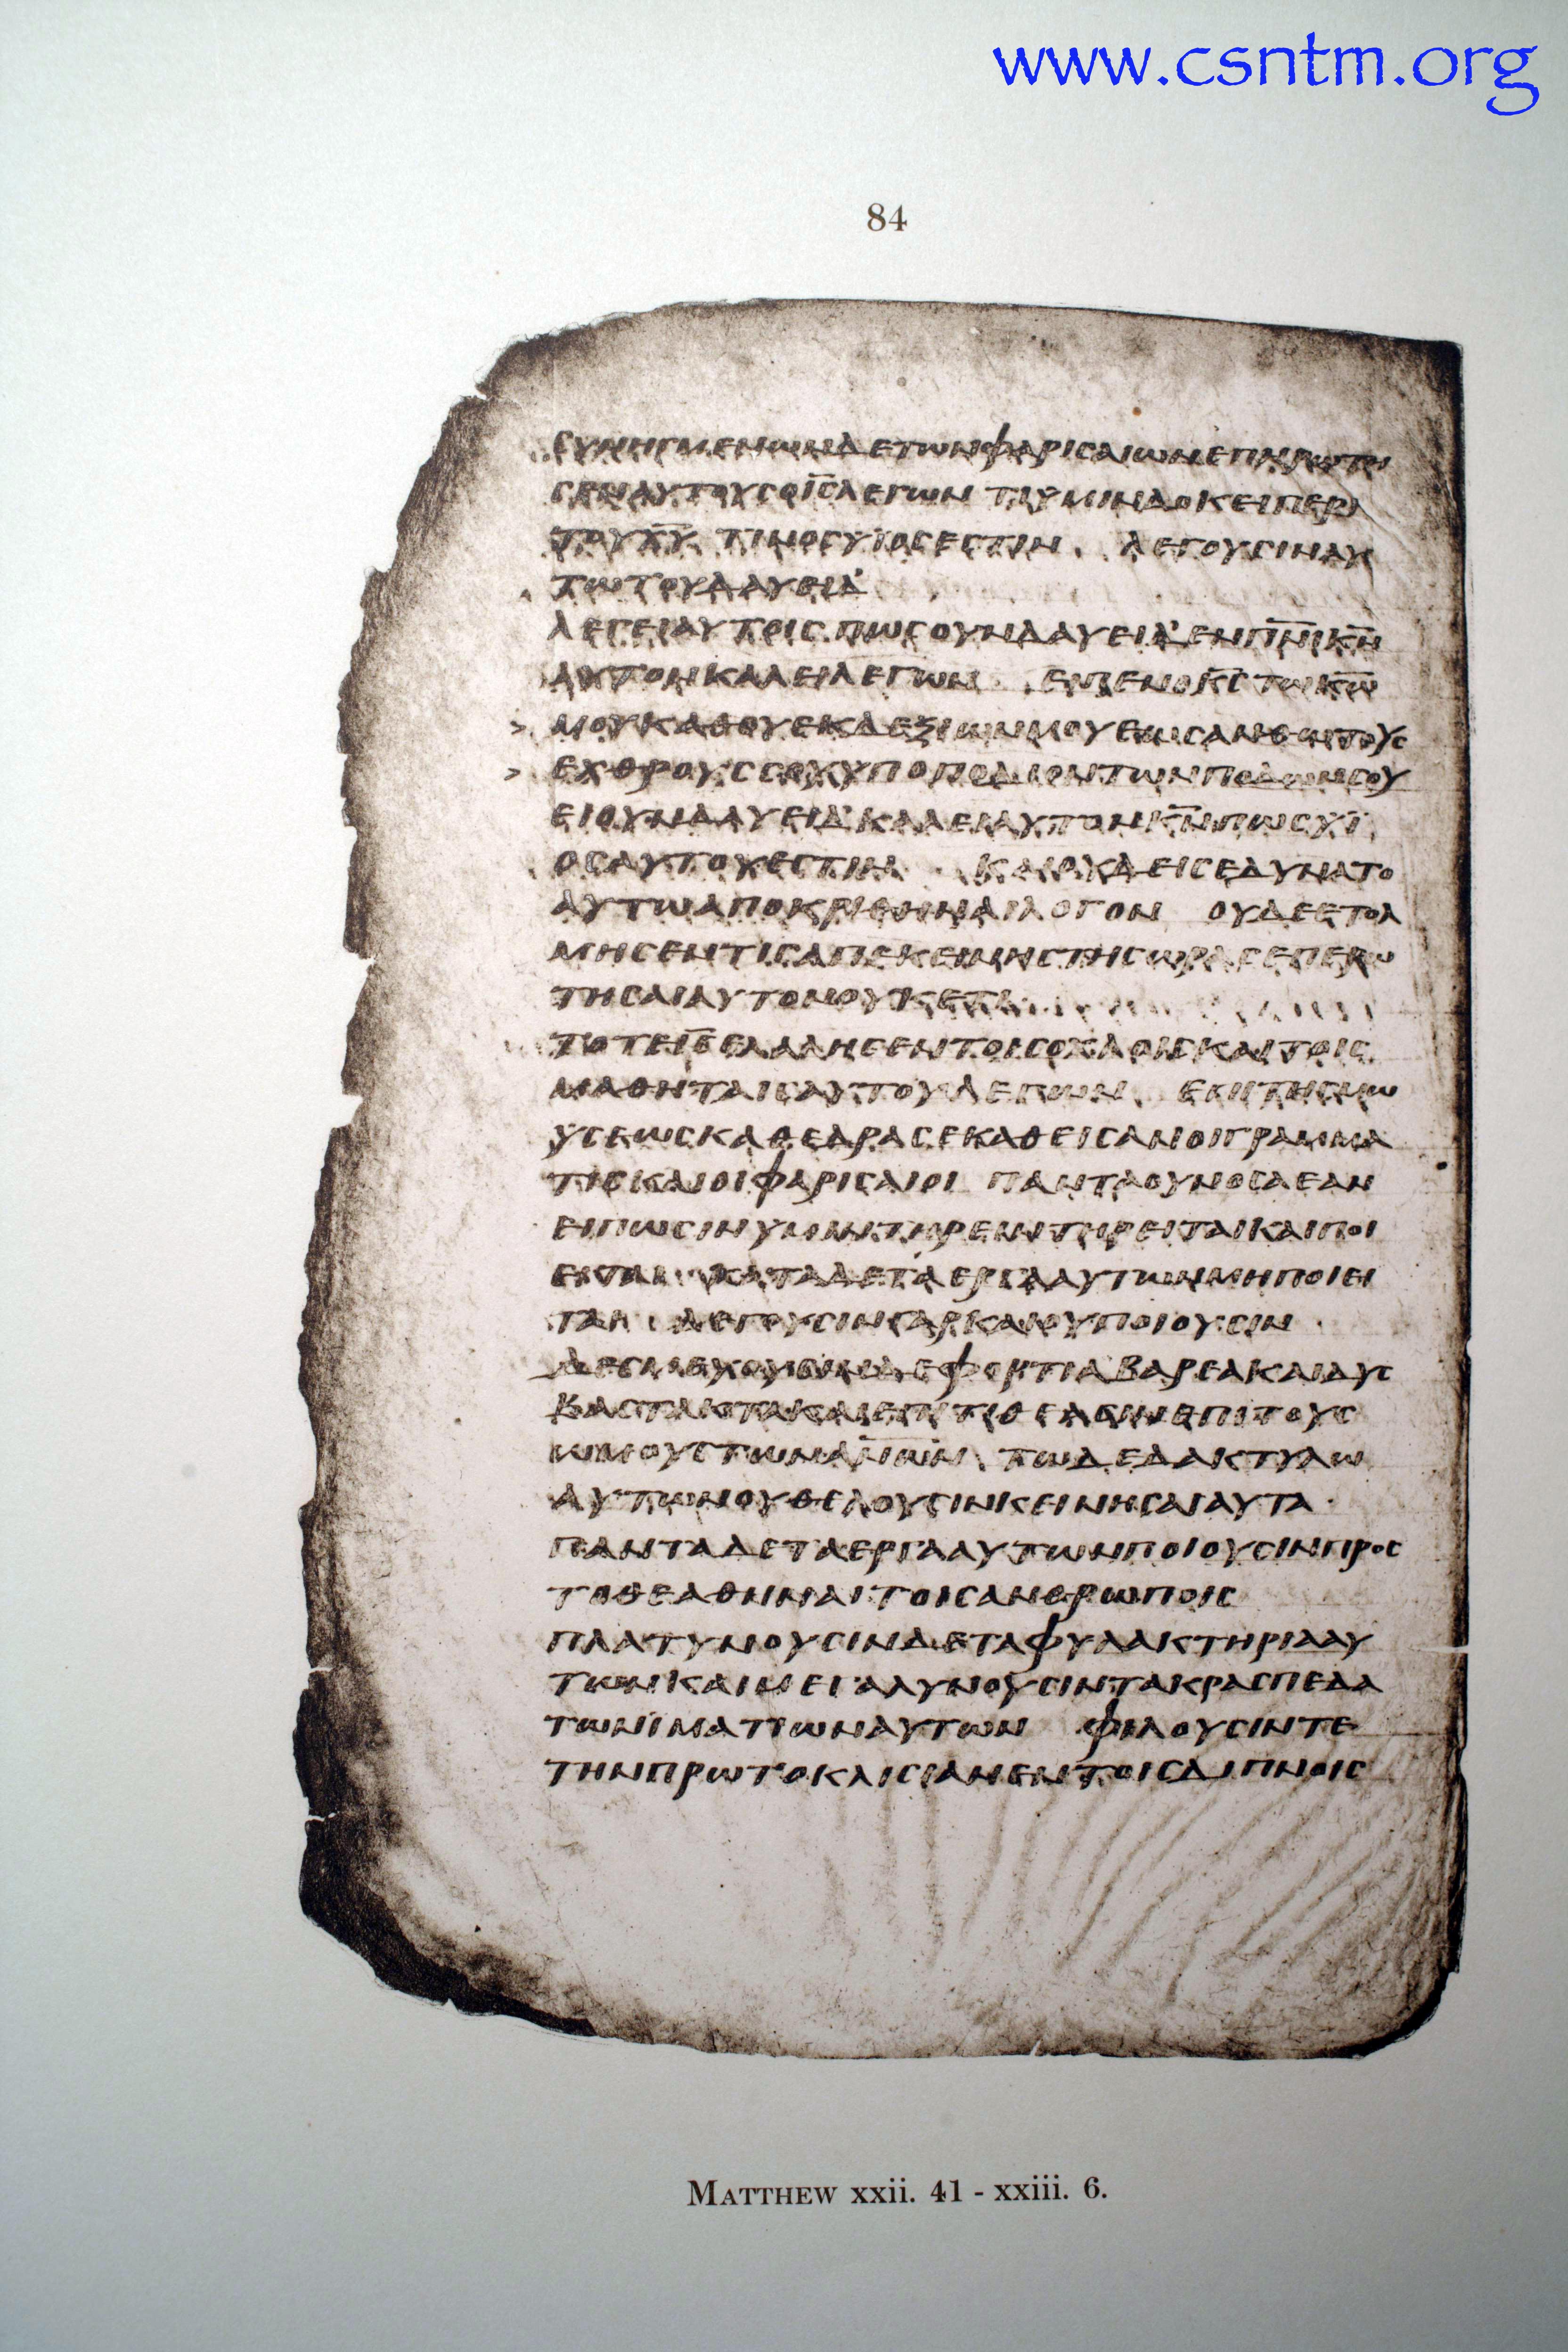 www.csntm.org
84
ϹΥΝΗΓΜΕΝΩΝΔΕΤΩΝΦΑΡΙϹΑΙΩΝΕΠΗΡΩΤΗ
ϹΕΝΑΥΤΟΥϹΟΙ̅Ϲ̅ΛΕΓΩΝ ΤΙΥΜΙΝΔΟΚΕΙΠΕΡΙ
ΤΟΥΧ̅Υ̅ ΤΙΝΟϹΥΪΟϹΕϹΤΙΝ ΛΕΓΟΥϹΙΝΑΥ
ΤΩΤΟΥΔΑΥΕΙΔ
ΛΕΓΕΙΑΥΤΟΙϹ ΠΩϹΟΥΝΔΑΥΕΙΔ ΕΝΠ̅Ν̅Ι̅Κ̅Ν̅
ΑΥΤΟΝΚΑΛΕΙΛΕΓΩΝ ΕΙΠΕΝΟΚ̅Ϲ̅ΤΩΚ̅Ω̅
> ΜΟΥΚΑΘΟΥΕΚΔΕΞΙΩΝΜΟΥΕΩϹΑΝΘΩΤΟΥϹ
> ΕΧΘΡΟΥϹϹΟΥΥΠΟΠΟΔΙΟΝΤΩΝΠΟΔΩΝϹΟΥ
ΕΙΟΥΝΔΑΥΕΙΔ ΚΑΛΕΙΑΥΤΟΝΚ̅Ν̅ΠΩϹΥΪ
ΟϹΑΥΤΟΥΕϹΤΙΝ ΚΑΙΟΥΔΕΙϹΕΔΥΝΑΤΟ
ΑΥΤΩΑΠΟΚΡΙΘΗΝΑΙΛΟΓΟΝ ΟΥΔΕΕΤΟΛ
ΜΗϹΕΝΤΙϹΑΠΕΚΕΙΝΗϹΤΗϹΩΡΑϹΕΠΕΡΩ
ΤΗϹΑΙΑΥΤΟΝΟΥΚΕΤΙ
ΤΟΤΕΙ̅Ϲ̅ΕΛΑΛΗϹΕΝΤΟΙϹΟΧΛΟΙϹΚΑΙΤΟΙϹ
ΜΑΘΗΤΑΙϹΑΥΤΟΥΛΕΓΩΝ ΕΠΙΤΗϹΜΩ
ΥϹΕΩϹΚΑΘΕΔΡΑϹΕΚΑΘΕΙϹΑΝΟΙΓΡΑΜΜΑ
ΤΙϹΚΑΙΟΙΦΑΡΙϹΑΙΟΙ ΠΑΝΤΑΟΥΝΟϹΑΕΑΝ
ΕΙΠΩϹΙΝΥΜΙΝΤΗΡΕΙΝΤΗΡΕΙΤΑΙΚΑΙΠΟΙ
ΕΙΤΑΙ ΚΑΤΑΔΕΤΑΕΡΓΑΑΥΤΩΝΜΗΠΟΙΕΙ
ΤΑΙ ΛΕΓΟΥϹΙΝΓΑΡΚΑΙΟΥΠΟΙΟΥϹΙΝ
ΔΕϹΜΕΥΟΥϹΙΝΔΕΦΟΡΤΙΑΒΑΡΕΑΚΑΙΔΥϹ
ΒΑϹΤΑΚΤΑΚΑΙΕΠΙΤΙΘΕΑϹΙΝΕΠΙΤΟΥϹ
ΩΜΟΥϹΤΩΝΑ̅Ν̅Ω̅Ν̅ ΤΩΔΕΔΑΚΤΥΛΩ
ΑΥΤΩΝΟΥΘΕΛΟΥϹΙΝΚΕΙΝΗϹΑΙΑΥΤΑ
ΠΑΝΤΑΔΕΤΑΕΡΓΑΑΥΤΩΝΠΟΙΟΥϹΙΝΠΡΟϹ
ΤΟΘΕΑΘΗΝΑΙΤΟΙϹΑΝΘΡΩΠΟΙϹ
ΠΛΑΤΥΝΟΥϹΙΝΔΕΤΑΦΥΛΑΚΤΗΡΙΑΑΥ
ΤΩΝΚΑΙΜΕΓΑΛΥΝΟΥϹΙΝΤΑΚΡΑϹΠΕΔΑ
ΤΩΝΪΜΑΤΙΩΝΑΥΤΩΝ ΦΙΛΟΥϹΙΝΤΕ
ΤΗΝΠΡΩΤΟΚΛΙϹΙΑΝΕΝΤΟΙϹΔΙΠΝΟΙϹ
MATTHEW xxii. 41 - xxiii. 6.